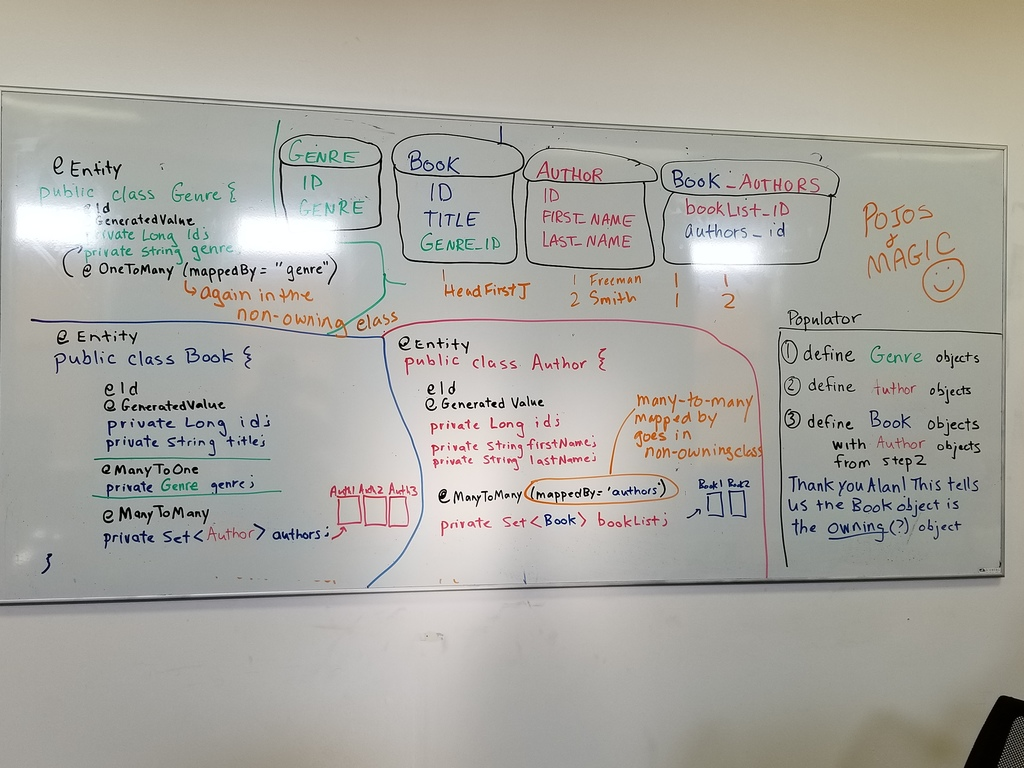 @ Entity
public class Genre {
@ Id
@ GeneratedValue
private Long id;
private String genre;
( @ OneToMany (mappedBy = "genre")
↳ again in the
non-owning class
GENRE
ID
GENRE
BOOK
ID
TITLE
GENRE_ID
AUTHOR
ID
FIRST_NAME
LAST_NAME
BOOK_AUTHORS
bookList_ID
authors_id
1 HeadFirstJ 1 Freeman 1 1
2 Smith 1 2
POJOS
&
MAGIC
@ Entity
public class Book {
@ Id
@ GeneratedValue
private Long id;
private String title;
@ManyToOne
private Genre genre;
@ManyToMany
private Set<Author> authors;
}
Auth1 Auth2 Auth3
@ Entity
public class Author {
@ Id
@ Generated Value
private Long id;
private String firstName;
private String lastName;
@ManyToMany (mappedBy= 'authors')
private Set<Book> bookList;
many-to-many
mapped by
goes in
non-owning class
Book1 Book2
Populator
① define Genre objects
② define Author objects
③ define Book objects
with Author objects
from step 2
Thank you Alan! This tells
us the Book object is
the owning(?) object